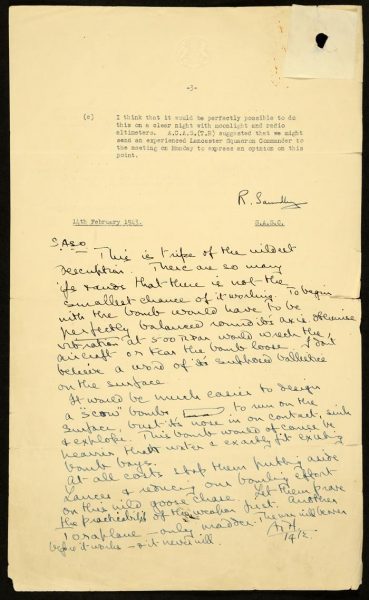 -3-
(c) I think that it would be perfectly possible to do
this on a clear night with moonlight and radio
altimeters. A.C.A.S.(T.R) suggested that we might
send an experienced Lancaster Squadron Commander to
the meeting on Monday to express an opinion on this
point.
R. Saundby
14th February 1943. S.A.S.O.
SASO
This is tripe of the wildest
description. There are so many
ifs & ands that there is not the
smallest chance of its working. To begin
with the bomb would have to be
perfectly balanced round its axis otherwise
vibration at 500 RPM would wreck the
aircraft or tear the bomb loose. I don't
believe a word of its supposed ballistics
on the surface.
It would be much easier to design
a "scow" bomb to run on the
surface, bust its nose in on contact, sink
& explode. This bomb would of course be
heavier than water & exactly fit existing
bomb bays.
At all costs stop them putting aside
Lancs & reducing our bombing effort
on this wild goose chase. Let them prove
the practicability of the weapon first. Another
Toraplane – only madder. The war will be over
before it works – & it never will.
AH
14/2